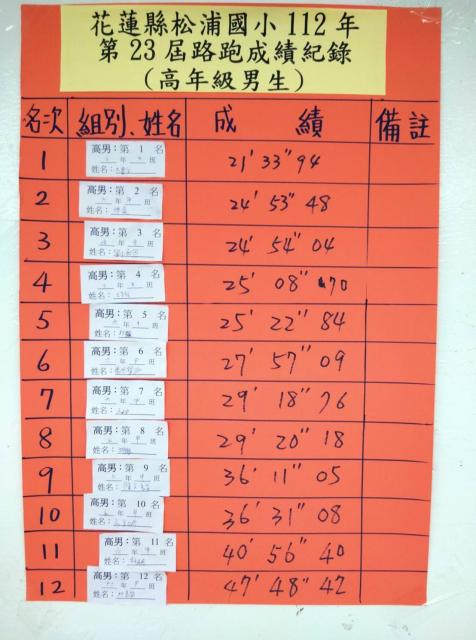 花蓮縣松浦國小112年
第23屆路跑成績紀錄
(高年級男生)
名次 組別、姓名 成績 備註
1 高男:第 1 名 21' 33" 94
年 班
姓名:
2 高男:第 2 名 24' 53" 48
年 班
姓名:
3 高男:第 3 名 24' 54" 04
年 班
姓名:
4 高男:第 4 名 25' 08" 70
年 班
姓名:
5 高男:第 5 名 25' 22" 84
年 班
姓名:
6 高男:第 6 名 27' 57" 09
年 班
姓名:
7 高男:第 7 名 29' 18" 76
年 班
姓名:
8 高男:第 8 名 29' 20" 18
年 班
姓名:
9 高男:第 9 名 36' 11" 05
年 班
姓名:
10 高男:第 10 名 36' 31" 08
年 班
姓名:
11 高男:第 11 名 40' 56" 40
年 班
姓名:
12 高男:第 12 名 47' 48" 42
年 班
姓名: